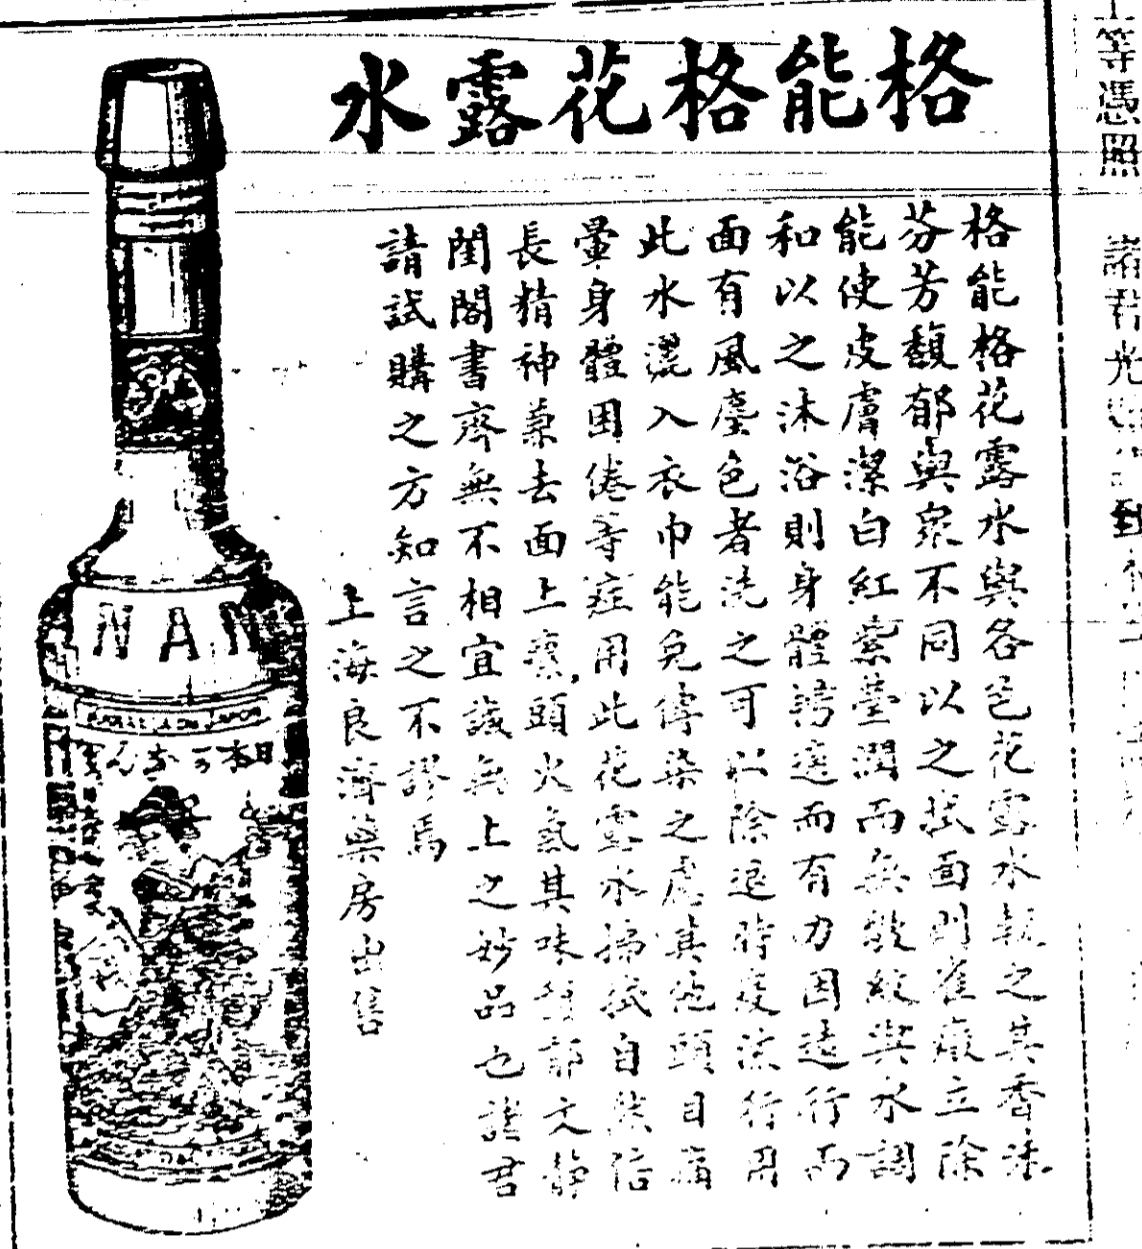 格能格花露水
格能格花露水與各色花露水較之其香味
芬芳馥郁與衆不同以之拭面則雀瘢立除
能使皮膚潔白紅紫瑩潤而無皺紋與水調
和以之沐浴則身體清造而有力因遠行而
面有風塵色者洗之可以除退時疫流行用
此水灑入衣巾能免傳染之處其他頭目痛
暈身體困倦等症用此花露水揚拭自然倍
長精神兼去面上瘰頭火氣其味郁文靜
閨閣書齋無不相宜誠無上之妙品也諸君
請試購之方知言之不謬焉
上海良濟藥房出售
NAN
日本
等憑照
諸君光